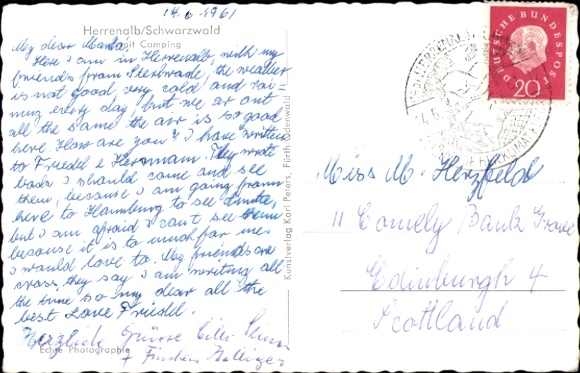 14.6.1961
Herrenalb/Schwarzwald
mit Camping
My dear Marta!
Here I am in Herrenalb, with my
friends from the weather
is not good, very cold and rai=
ning every day but we ar out
all the same the air is so good
here. How are you? I have written
to Friedel & Hermann. They wrote
back I should come and see
them, because I am going from
here to Hamburg to see
but I am afraid I can't see them
because it is to much for me
I would love to. My friends are
cross, they say I am writing all
the time so my dear all the
best Love Friedel.
Herzlich Grüsse
+
Echte Photographie
Kunstverlag Karl Peters, Fürth Odenwald
DEUTSCHE BUNDESPOST
20
Miss M. Herzfeld
11 Comely Bank Grove
Edinburgh 4
Scottland